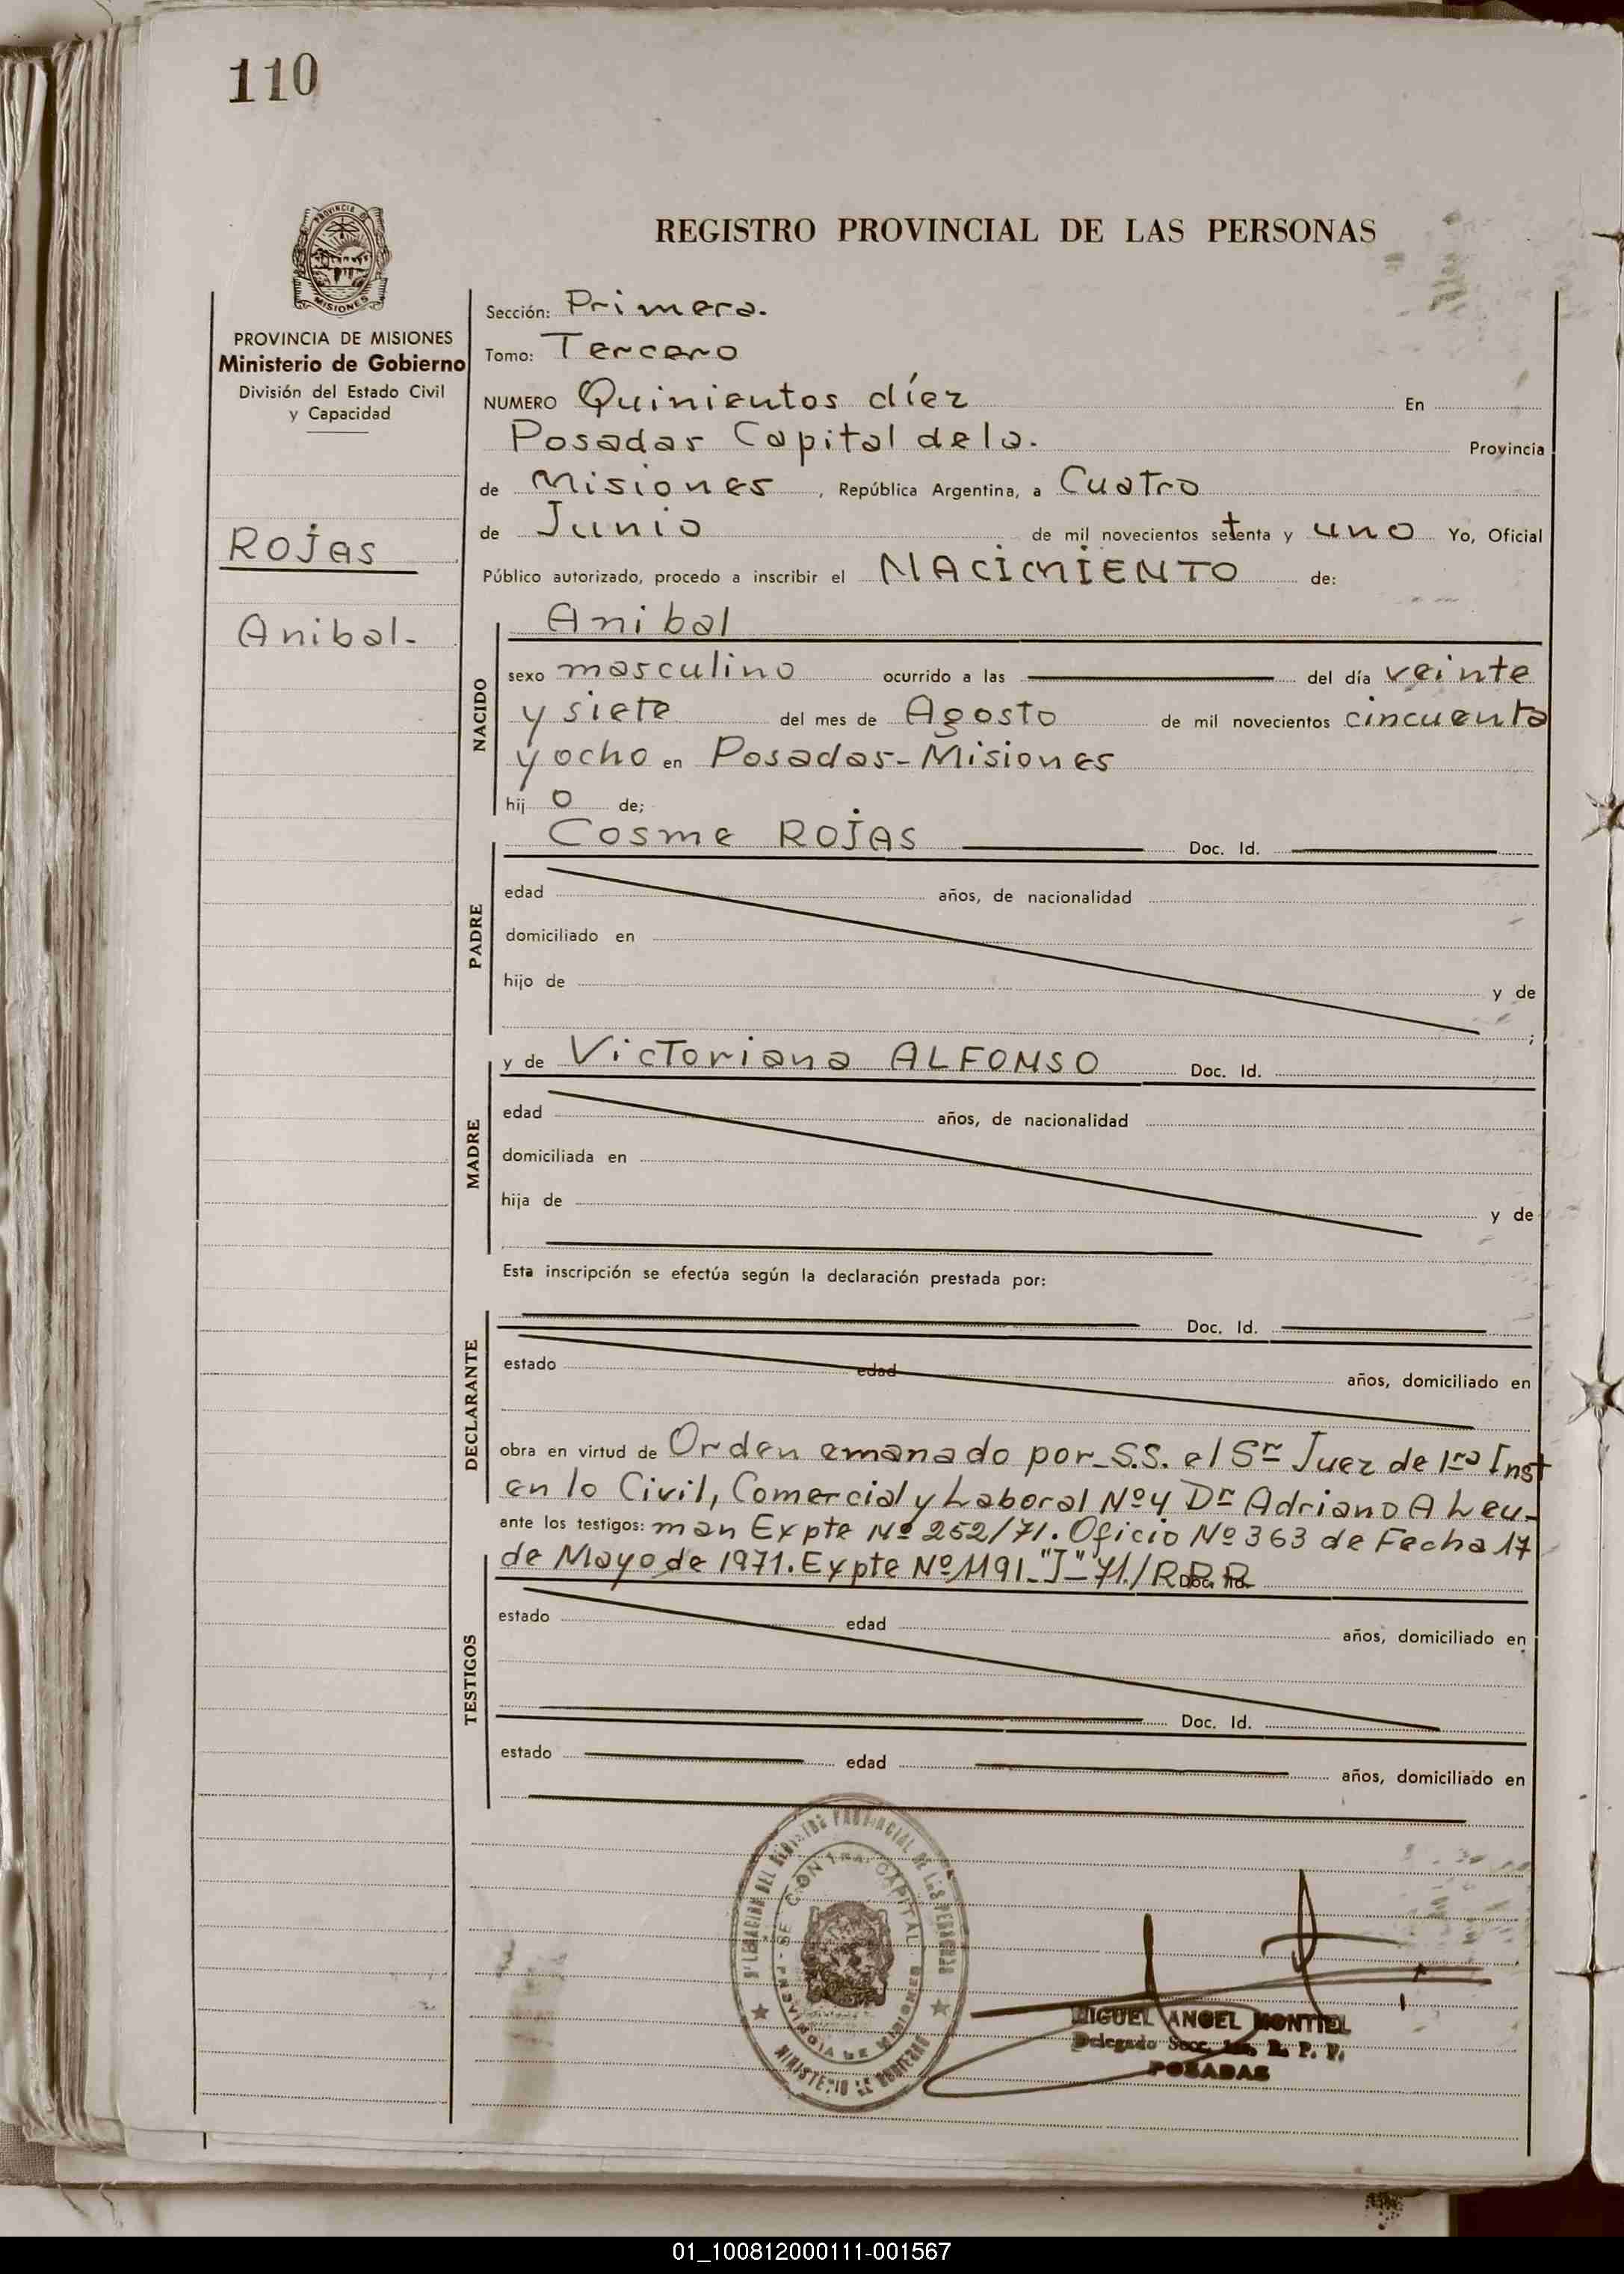 110
PROVINCIA DE
MISIONES
PROVINCIA DE MISIONES
Ministerio de Gobierno
División del Estado Civil
y Capacidad
Rojas
Anibal-
REGISTRO PROVINCIAL DE LAS PERSONAS
Sección: Primera.
Tomo: Tercero
NUMERO Quinientos díez En
Posadas Capital de la. Provincia
de Misiones, República Argentina, a Cuatro
de Junio de mil novecientos setenta y uno Yo, Oficial
Público autorizado, procedo a inscribir el NACIMIENTO de:
NACIDO
Anibal
sexo masculino ocurrido a las del día veinte
y siete del mes de Agosto de mil novecientos cincuenta
y ocho en Posadas-Misiones
hij o de;
PADRE
Cosme ROJAS Doc. Id.
edad años, de nacionalidad
domiciliado en
hijo de y de
;
MADRE
y de Victoriana ALFONSO Doc. Id.
edad años, de nacionalidad
domiciliada en
hija de y de
Esta inscripción se efectúa según la declaración prestada por:
DECLARANTE
Doc. Id.
estado edad años, domiciliado en
obra en virtud de Orden emanado por S.S. el Sr Juez de 1ra Inst
en lo Civil, Comercial y Laboral Nº4 Dr Adriano A Leu-
ante los testigos: man Expte Nº 252/71. Oficio Nº 363 de Fecha 17
de Mayo de 1971. Expte Nº 1191-"J"-71./R.P.P. Doc. Id.
TESTIGOS
estado edad años, domiciliado en
Doc. Id.
estado edad años, domiciliado en
DEL REGISTRO PROVINCIAL DE LAS PERSONAS
CAPITAL
PROVINCIA DE MISIONES
MINISTERIO DE GOBIERNO
MIGUEL ANGEL MONTIEL
Delegado Secc. 1ra. R. P. P.
POSADAS
01_100812000111-001567